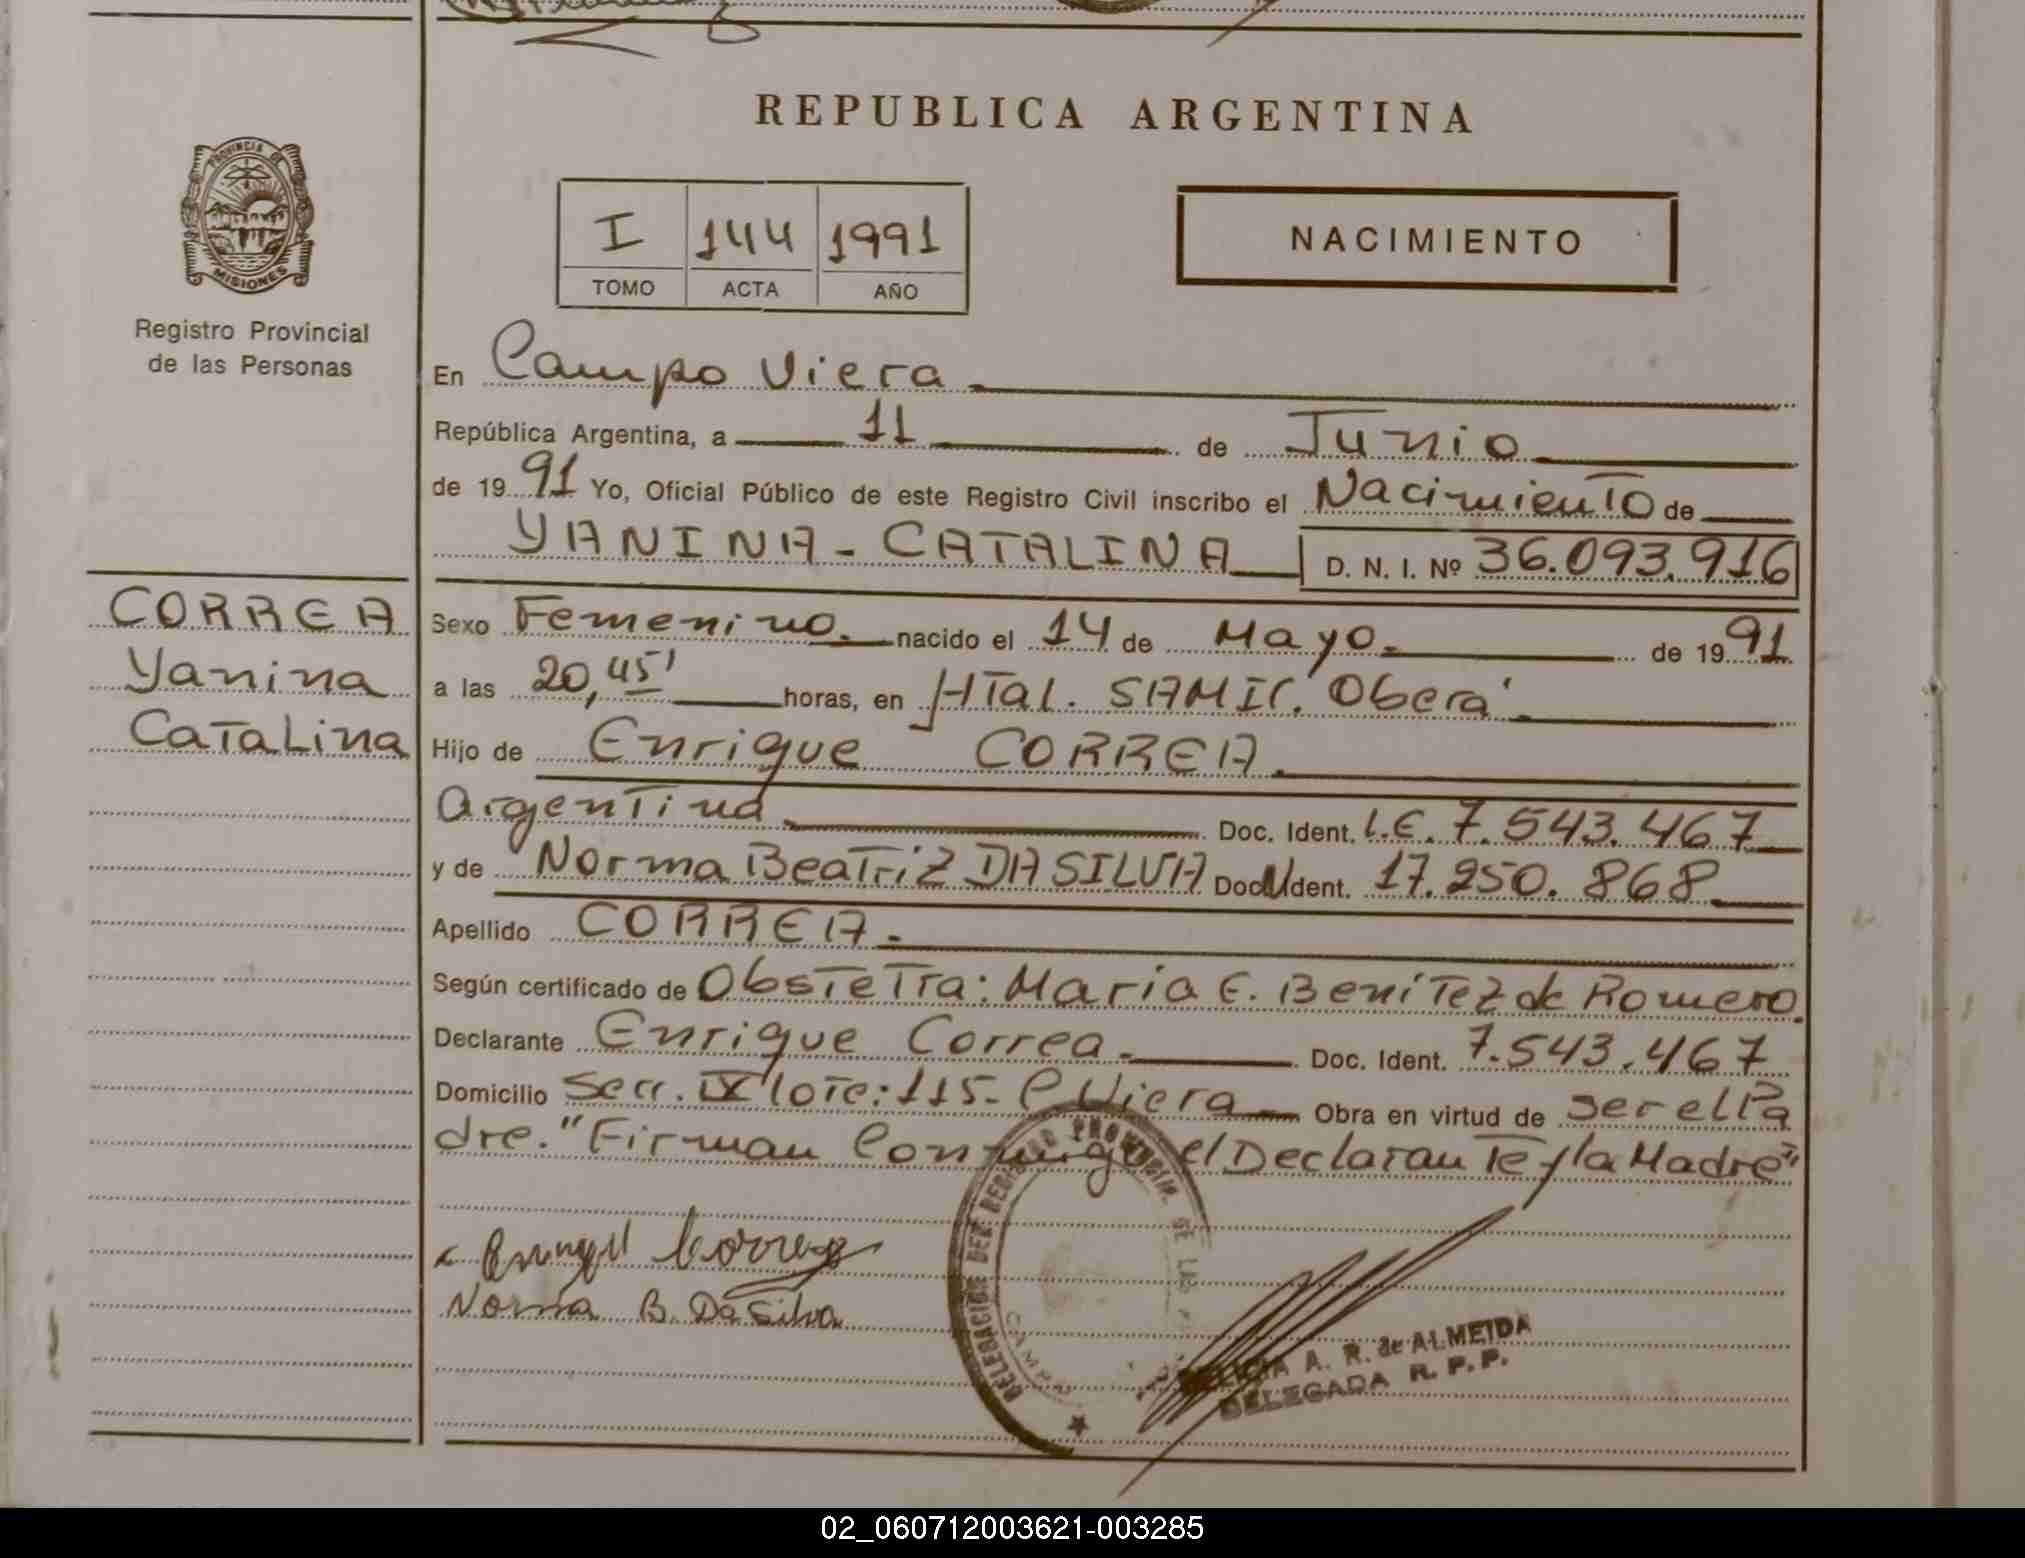 REPUBLICA ARGENTINA
PROVINCIA DE
MISIONES
Registro Provincial
de las Personas
I 144 1991
TOMO ACTA AÑO
NACIMIENTO
En Campo Viera
República Argentina, a 11 de Junio
de 1991 Yo, Oficial Público de este Registro Civil inscribo el Nacimiento de
YANINA - CATALINA D. N. I. Nº 36.093.916
CORREA
Yanina
Catalina
Sexo Femenino. nacido el 14 de Mayo. de 1991
a las 20,45' horas, en Htal. SAMIC. Oberá
Hijo de Enrique CORREA.
Argentina Doc. Ident. L.E. 7.543.467
y de Norma Beatriz DA SILVA Doc. Ident. 17.250.868
Apellido CORREA.
Según certificado de Obstetra: Maria E. Benítez de Romero.
Declarante Enrique Correa. Doc. Ident. 7.543.467
Domicilio Secc. IX lote: 115- C Viera Obra en virtud de ser el Pa
dre. "Firman Conmigo el Declarante y la Madre"
Correa
Norma B. Da Silva
DELEGACION DEL REGISTRO PROVINCIAL DE LAS
CAMPO
A. R. de ALMEIDA
DELEGADA R. P. P.
02_060712003621-003285